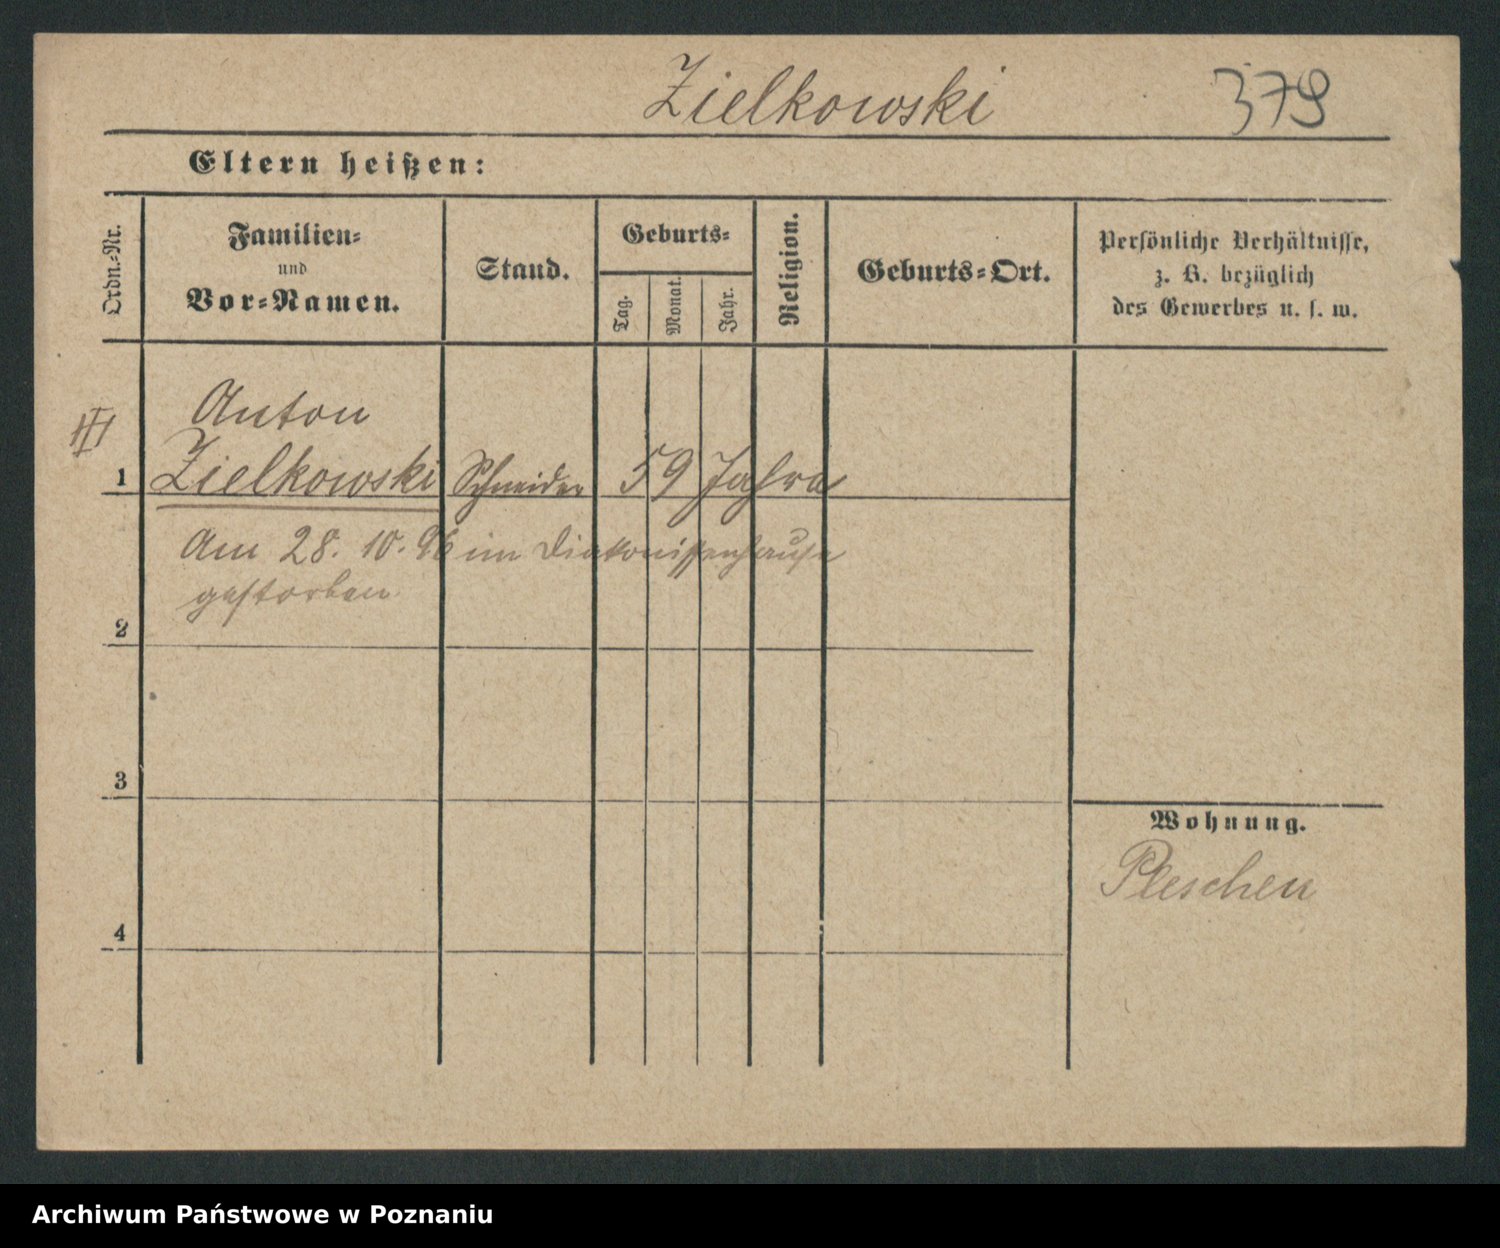 Zielkowski 379
Eltern heißen:
Ordn.-Nr.
Familien-
und
Vor-Namen.
Stand.
Geburts-
Tag.
Monat.
Jahr.
Religion.
Geburts-Ort.
Persönliche Verhältnisse,
z. B. bezüglich
des Gewerbes u. s. w.
III
Anton
1 Zielkowski Schneider 59 Jahre
Am 28. 10. 96 im Diakonissenhause
gestorben
2
3
Wohnung.
Pleschen
4
Archiwum Państwowe w Poznaniu